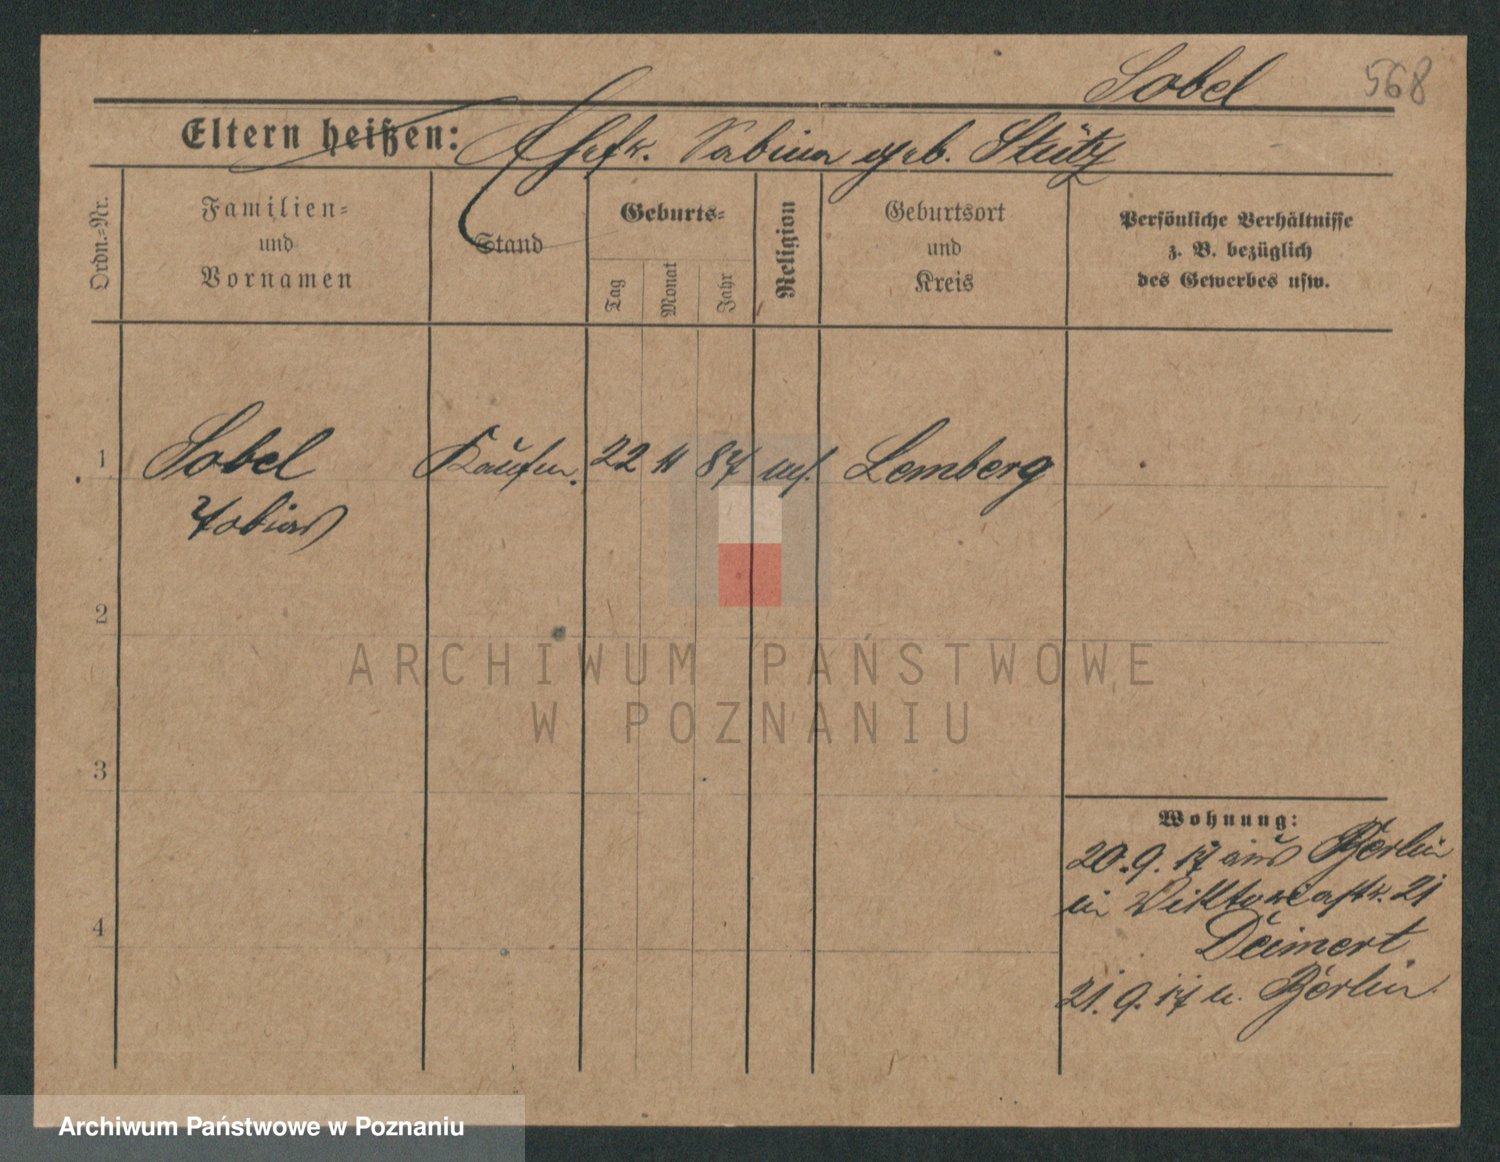 Sobel 568
Eltern heißen: Ehefr. Sabina geb. Stütz
Ordn.-Nr.
Familien-
und
Vornamen
Stand
Geburts-
Tag Monat Jahr
Religion
Geburtsort
und
Kreis
Persönliche Verhältnisse
z. B. bezüglich
des Gewerbes usw.
1 Sobel Kaufm. 22 11 87 Lemberg
Tobias
2
3
4
Wohnung:
20.9.17 aus Berlin
in Viktoriastr. 21
Deimert
21.9.17 n. Berlin
ARCHIWUM PAŃSTWOWE
W POZNANIU
Archiwum Państwowe w Poznaniu